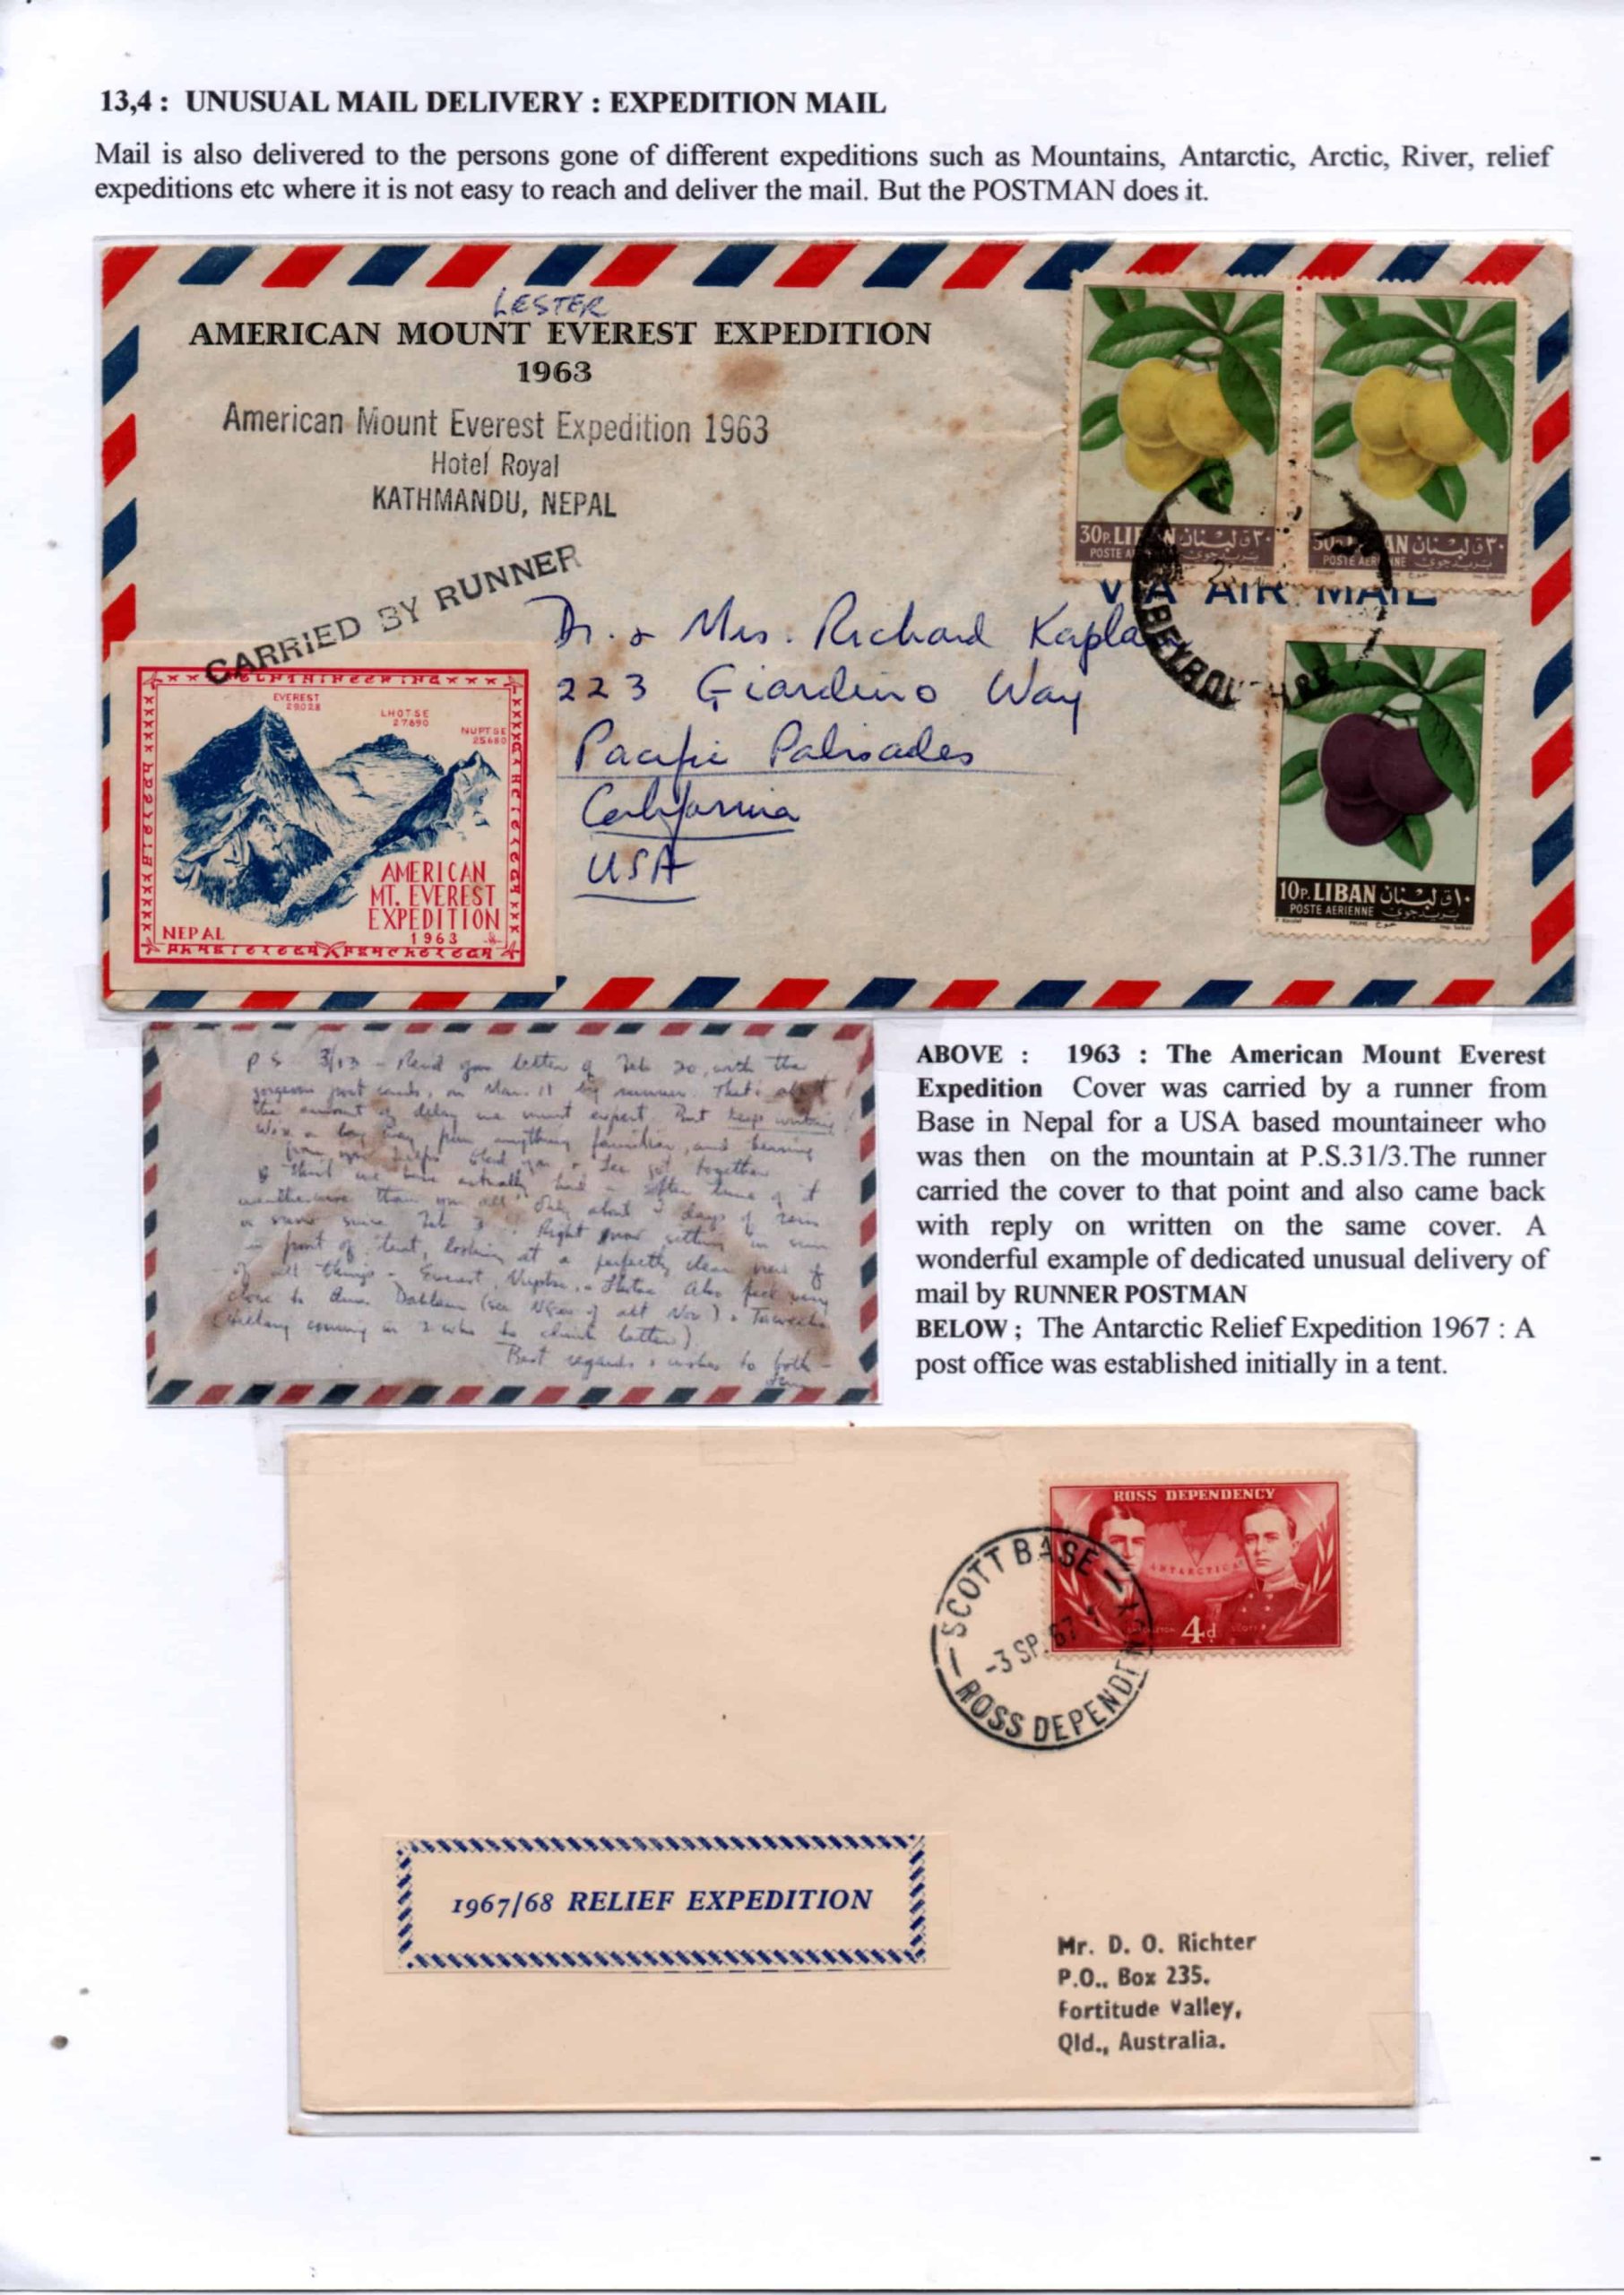 13,4 : UNUSUAL MAIL DELIVERY : EXPEDITION MAIL
Mail is also delivered to the persons gone of different expeditions such as Mountains, Antarctic, Arctic, River, relief
expeditions etc where it is not easy to reach and deliver the mail. But the POSTMAN does it.
LESTER
AMERICAN MOUNT EVEREST EXPEDITION
1963
American Mount Everest Expedition 1963
Hotel Royal
KATHMANDU, NEPAL
CARRIED BY RUNNER
30P. LIBAN لبنان ٣٠ق
POSTE AERIENNE بريد جوي
LIBAN لبنان ٣٠ق
POSTE AERIENNE بريد جوي
VIA AIR MAIL
Dr. & Mrs. Richard Kapla
223 Giardino Way
Pacific Palisades
California
USA
10P. LIBAN لبنان ١٠ق
POSTE AERIENNE بريد جوي
EVEREST
29028
LHOTSE
27890
NUPTSE
25680
AMERICAN
MT. EVEREST
EXPEDITION
1963
NEPAL
P.S. 3/13 - Rec'd your letter of Feb 20, with the
gorgeous post cards, on Mar. 11 by runner. That's about
the amount of delay we must expect. But keep writing!
We're a long way from anything familiar, and hearing
from you helps. Glad you & Lee got together
I think we have actually had a softer time of it
weatherwise than you all. Only about 3 days of rain
or snow since Feb Right now sitting in sun
in front of tent, looking at a perfectly clear view of
of all things - Everest, Nuptse, & Lhotse. Also feel very
close to Ama Dablam (see of Nov) & Taweche
(Hillary coming in 2 wks to climb latter).
Best regards & wishes to both -
ABOVE : 1963 : The American Mount Everest
Expedition Cover was carried by a runner from
Base in Nepal for a USA based mountaineer who
was then on the mountain at P.S.31/3.The runner
carried the cover to that point and also came back
with reply on written on the same cover. A
wonderful example of dedicated unusual delivery of
mail by RUNNER POSTMAN
BELOW ; The Antarctic Relief Expedition 1967 : A
post office was established initially in a tent.
ROSS DEPENDENCY
ANTARCTICA
SHACKLETON 4d SCOTT
SCOTT BASE
-3 SP. 67
ROSS DEPENDENCY
1967/68 RELIEF EXPEDITION
Mr. D. O. Richter
P.O., Box 235,
Fortitude Valley,
Qld., Australia.